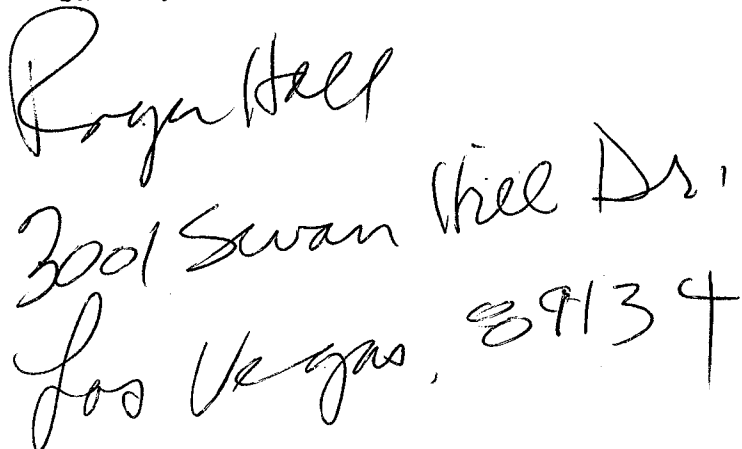 Roger Hall
3001 Swan Hill Dr.
Las Vegas, 89134